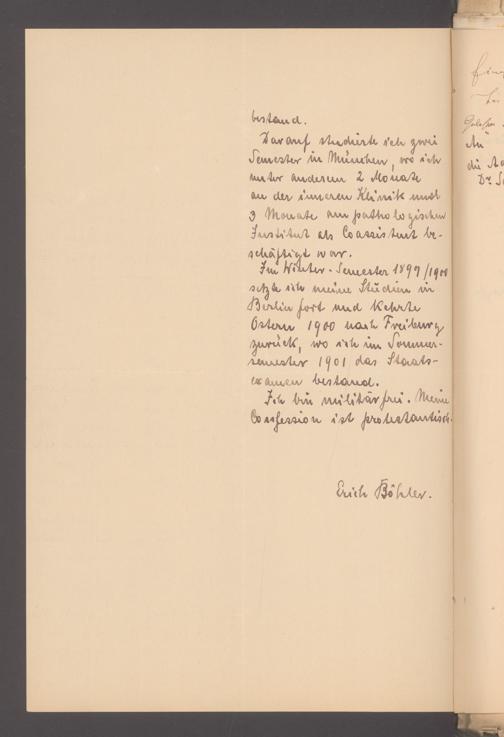 bestand.
Darauf studierte ich zwei
Semester in München, wo ich
unter anderem 2 Monate
an der inneren Klinik und
3 Monate am pathologischen
Institut als Coassistent be-
schäftigt war.
Im Winter-Semester 1899/1900
setzte ich meine Studien in
Berlin fort und kehrte
Ostern 1900 nach Freiburg
zurück, wo ich im Sommer-
semester 1901 das Staats-
examen bestand.
Ich bin militärfrei. Meine
Confession ist protestantisch.
Erich Böhler.
An
die
Dr.